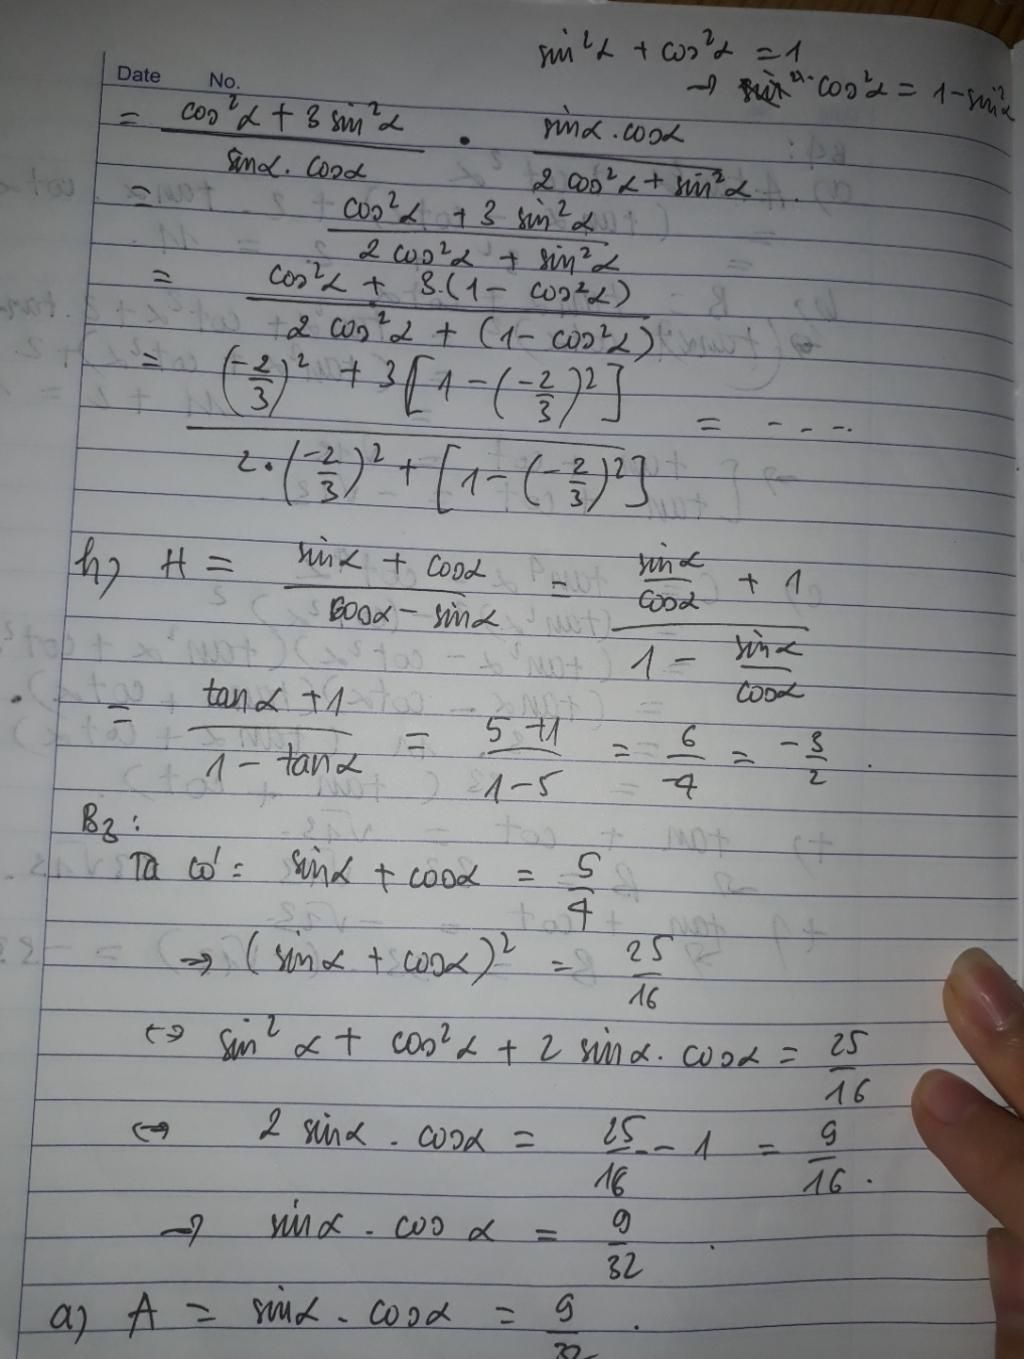 sin²α + cos²α = 1
Date No.
→ cos²α = 1 - sin²α
= (cos²α + 3 sin²α)/(sinα . cosα) . (sinα . cosα)/(2 cos²α + sin²α) .
= (cos²α + 3 sin²α)/(2 cos²α + sin²α)
= (cos²α + 3.(1 - cos²α))/(2 cos²α + (1 - cos²α))
= ((-2/3)² + 3[1 - (-2/3)²])/(2.(-2/3)² + [1 - (-2/3)²]) = ....
h) H = (sinα + cosα)/(cosα - sinα) = (sinα/cosα + 1)/(1 - sinα/cosα)
= (tanα + 1)/(1 - tanα) = (5 + 1)/(1 - 5) = 6/-4 = -3/2 .
B3 :
Ta có : sinα + cosα = 5/4
→ (sinα + cosα)² = 25/16
↔ sin²α + cos²α + 2 sinα . cosα = 25/16
↔ 2 sinα . cosα = 25/16 - 1 = 9/16 .
→ sinα . cosα = 9/32 .
a) A = sinα . cosα = 9/32 .